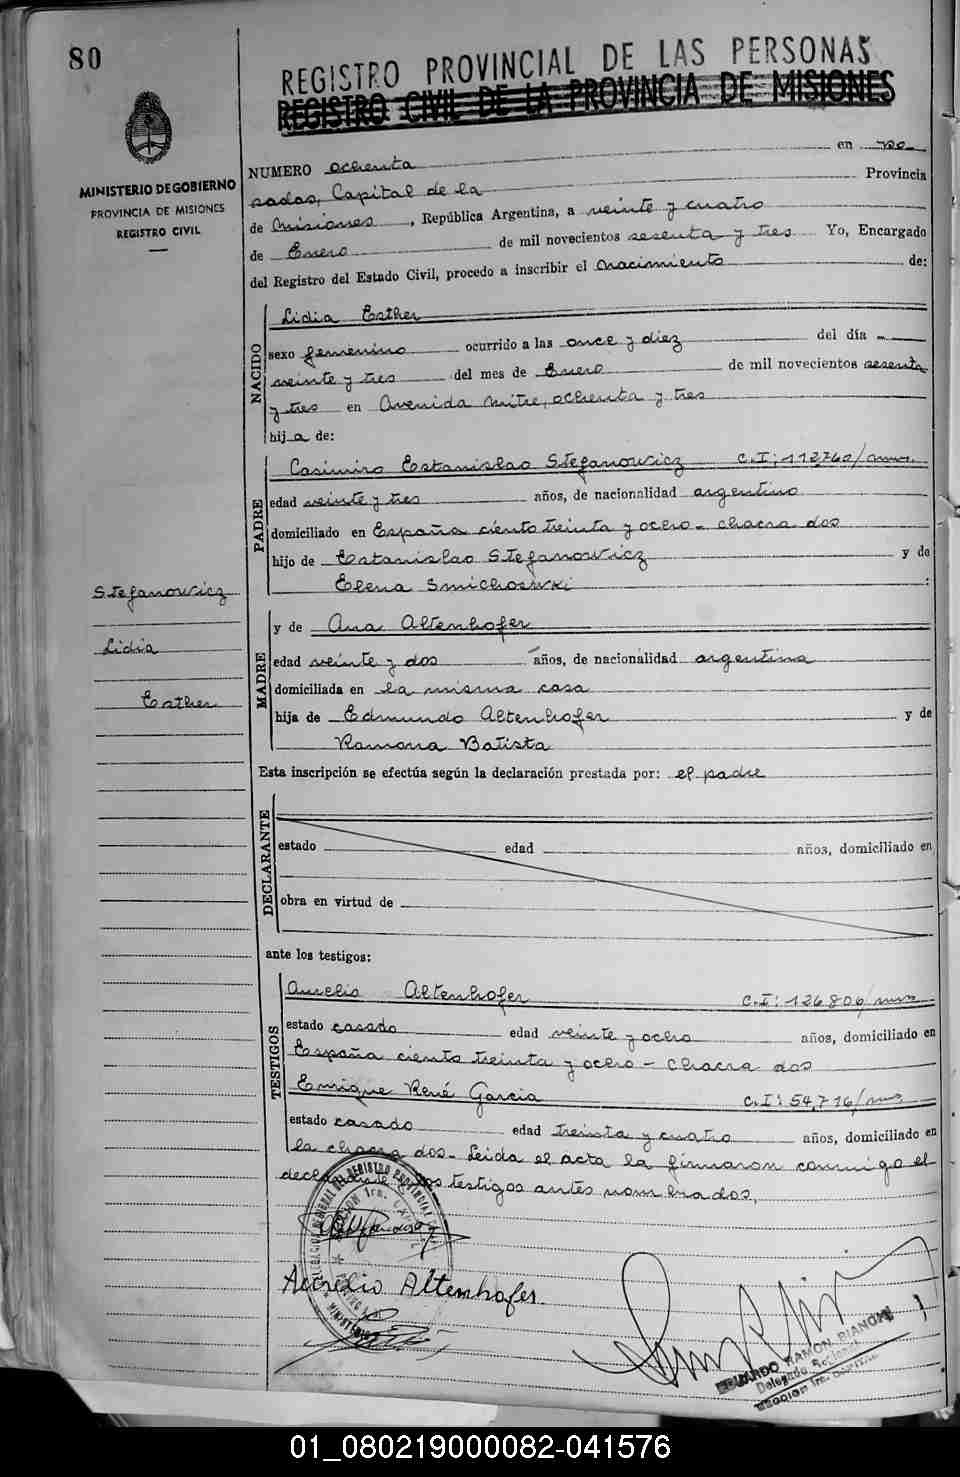 80
REGISTRO PROVINCIAL DE LAS PERSONAS
REGISTRO CIVIL DE LA PROVINCIA DE MISIONES
MINISTERIO DE GOBIERNO
PROVINCIA DE MISIONES
REGISTRO CIVIL
NUMERO ochenta en Po-
sadas, Capital de la Provincia
de Misiones, República Argentina, a veinte y cuatro
de Enero de mil novecientos sesenta y tres Yo, Encargado
del Registro del Estado Civil, procedo a inscribir el nacimiento de:
NACIDO
Lidia Esther
sexo femenino ocurrido a las once y diez del día
veinte y tres del mes de Enero de mil novecientos sesenta
y tres en Avenida Mitre, ochenta y tres
hija de:
PADRE
Casimiro Estanislao Stefanowicz C.I: 112,760/mns.
edad veinte y tres años, de nacionalidad argentino
domiciliado en España ciento treinta y ocho - chacra dos
hijo de Estanislao Stefanowicz y de
Elena Smichowski :
Stefanowicz
Lidia
Esther
MADRE
y de Ana Altenhofer
edad veinte y dos años, de nacionalidad argentina
domiciliada en la misma casa
hija de Edmundo Altenhofer y de
Ramona Batista
Esta inscripción se efectúa según la declaración prestada por: el padre
DECLARANTE
estado edad años, domiciliado en
obra en virtud de
ante los testigos:
TESTIGOS
Aurelio Altenhofer C.I: 126806/mns
estado casado edad veinte y ocho años, domiciliado en
España ciento treinta y ocho - chacra dos
Enrique René Garcia C.I: 54,716/mns
estado casado edad treinta y cuatro años, domiciliado en
la chacra dos - Leida el acta la firmaron conmigo el
declarante y los testigos antes nombrados.
Aurelio Altenhofer.
EDUARDO RAMON BIANCHI
Delegado Regional
SECCION 1ra. CAPITAL
01_080219000082-041576